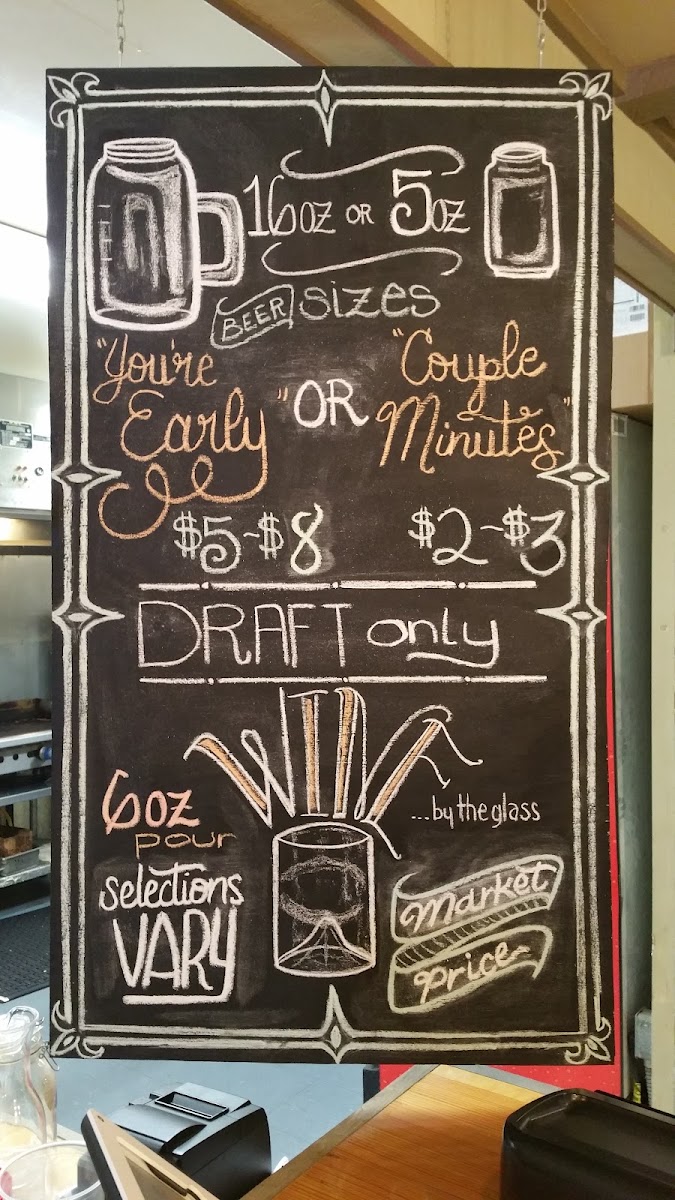 16oz OR 5oz
BEER sizes
"You're Early" OR "Couple Minutes"
$5~$8 $2~$3
DRAFT only
WINE
...by the glass
6oz
pour
selections
VARY
market
price